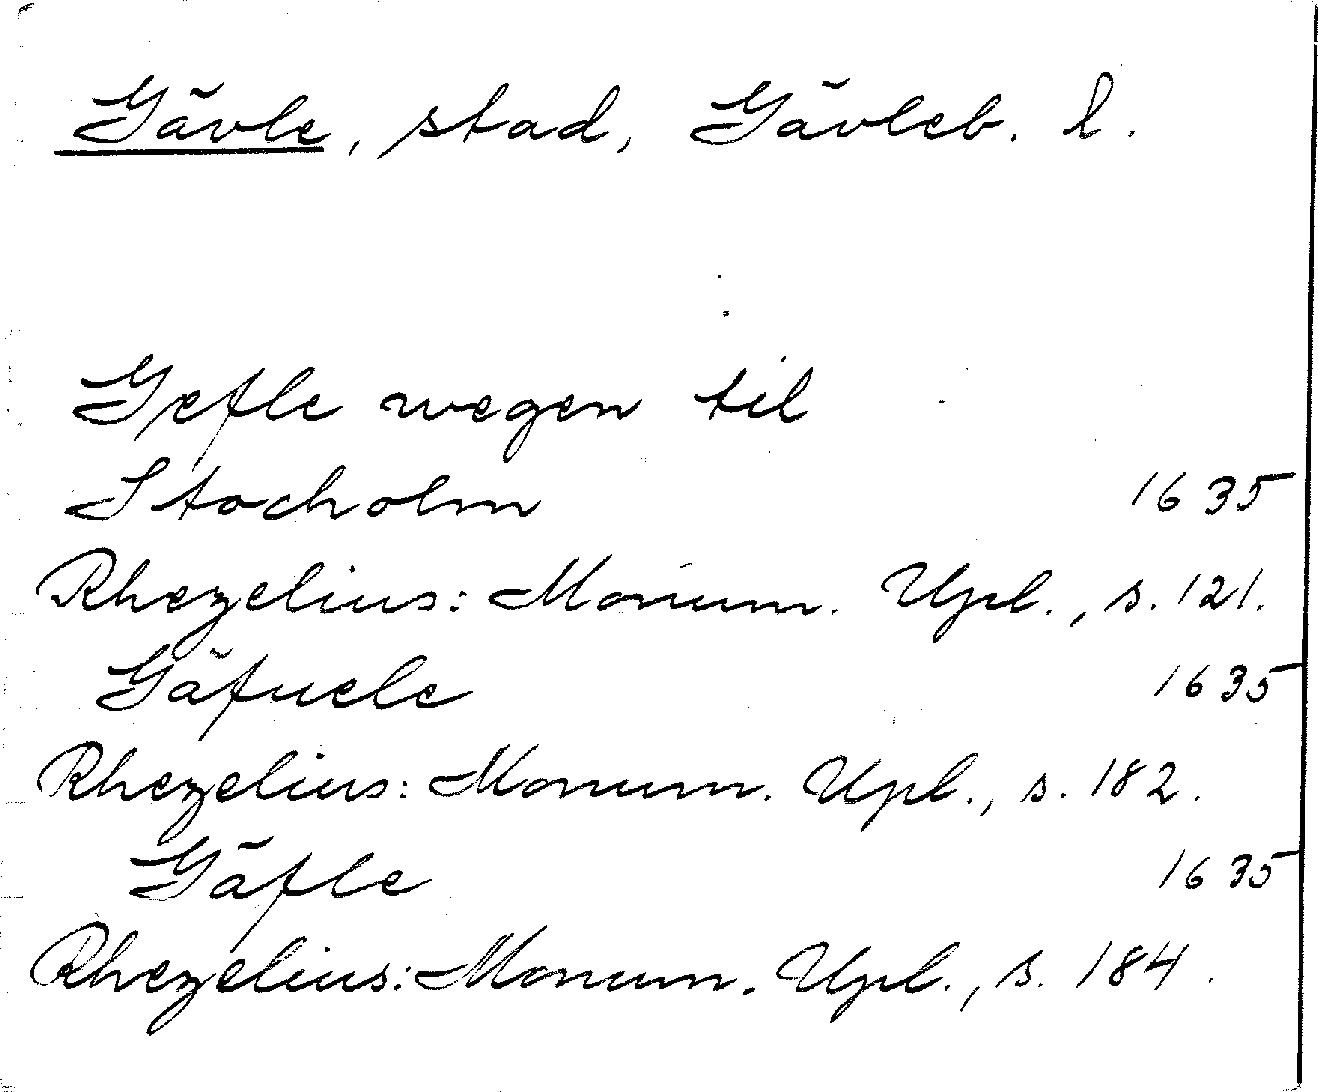 Gävle, stad, Gävleb. l.
Gefle wegen til
Stocholm 1635
Rhezelius: Monum. Upl., s. 121.
Gäfuele 1635
Rhezelius: Monum. Upl., s. 182.
Gäfle 1635
Rhezelius: Monum. Upl., s. 184.